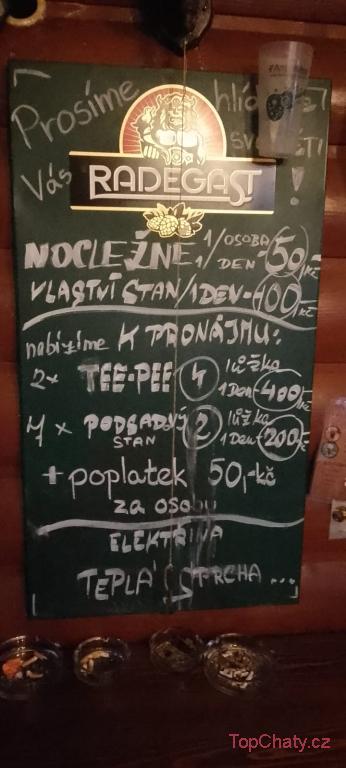 Prosíme
Vás
RADEGAST
!
NOCLEŽNÉ 1/OSOBA/DEN 50 Kč
VLASTNÍ STAN/1 DEN-100 Kč
nabízíme K PRONÁJMU:
2x TEE-PEE 4 lůžka 1Den-400 Kč
7x PODSADOVÝ STAN 2 lůžka 1Den-200 Kč
+ poplatek 50,-kč
za osobu
ELEKTŘINA
TEPLÁ SPRCHA...
TopChaty.cz